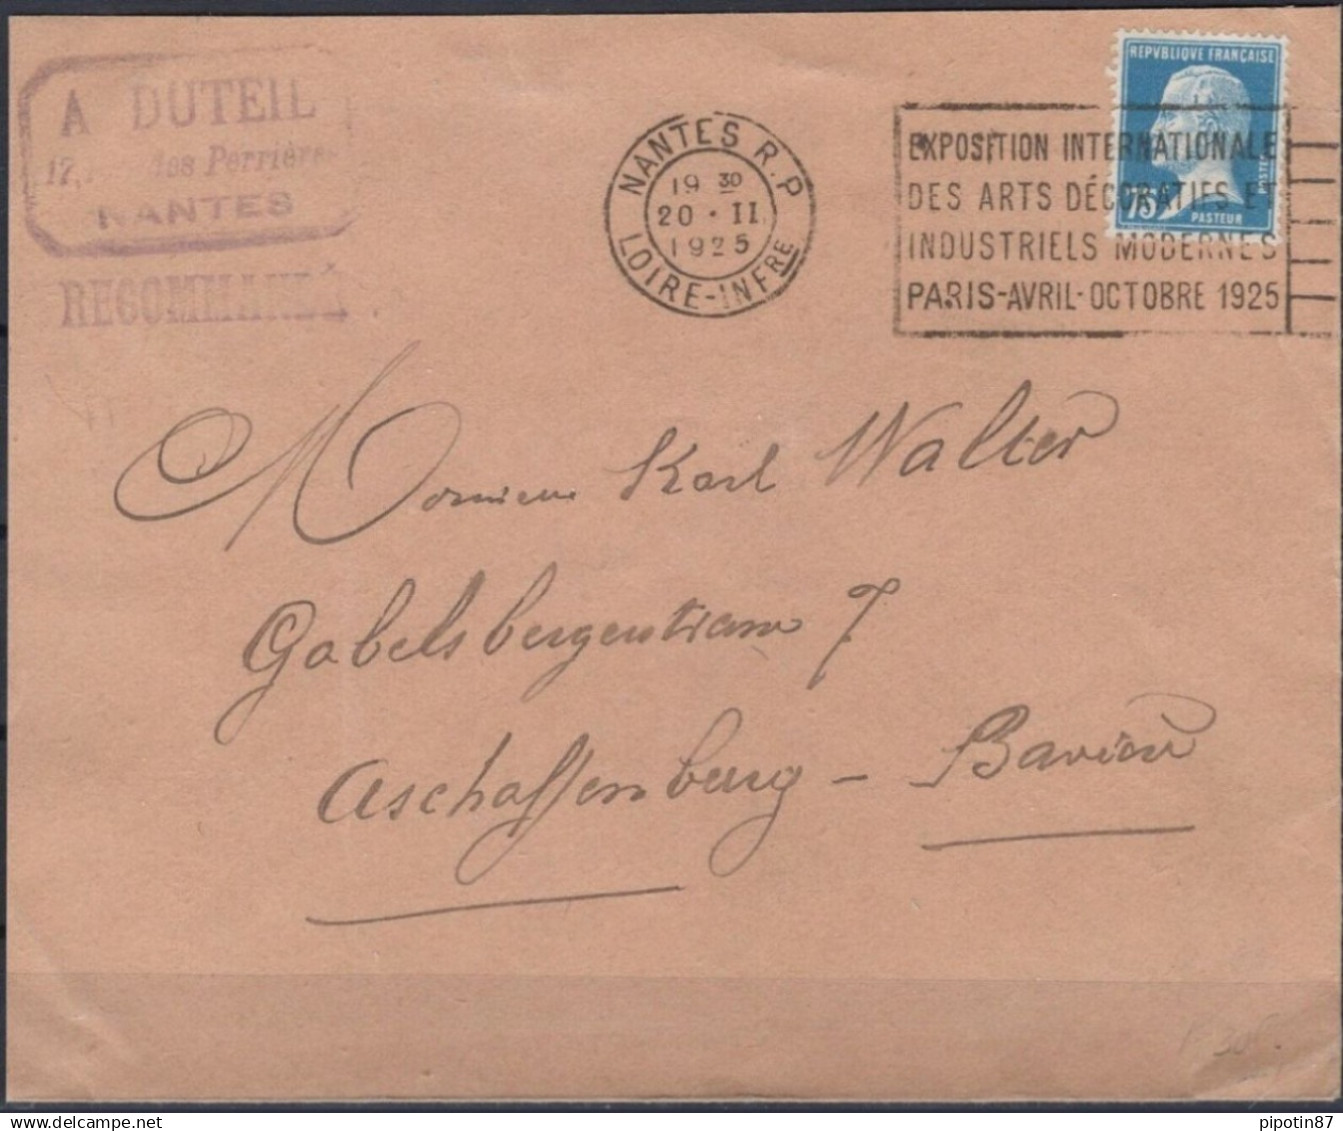 A DUTEIL
17, des Perrières
NANTES
RECOMMANDÉ
NANTES R.P
19 30
20 · II
1925
LOIRE-INFRE
REPVBLIQUE FRANÇAISE
POSTES
75c
PASTEUR
EXPOSITION INTERNATIONALE
DES ARTS DÉCORATIFS ET
INDUSTRIELS MODERNES
PARIS-AVRIL-OCTOBRE 1925
Monsieur Karl Walter
Gabelsbergerstrasse 7
Aschaffenburg - Bavière
pipotin87